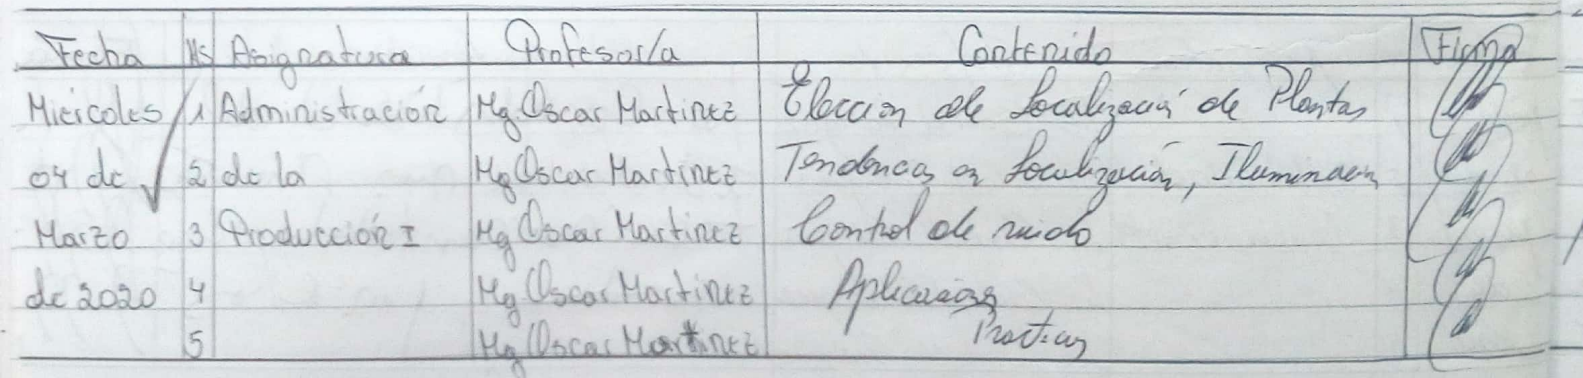 Fecha Hs Asignatura Profesor/a Contenido Firma
Miércoles 1 Administración Mg Oscar Martinez Elección de Localización de Plantas
04 de 2 de la Mg Oscar Martinez Tendencias en Localización, Iluminación
Marzo 3 Producción I Mg Oscar Martinez Control de ruido
de 2020 4 Mg Oscar Martinez Aplicaciones
5 Mg Oscar Martinez Practicas